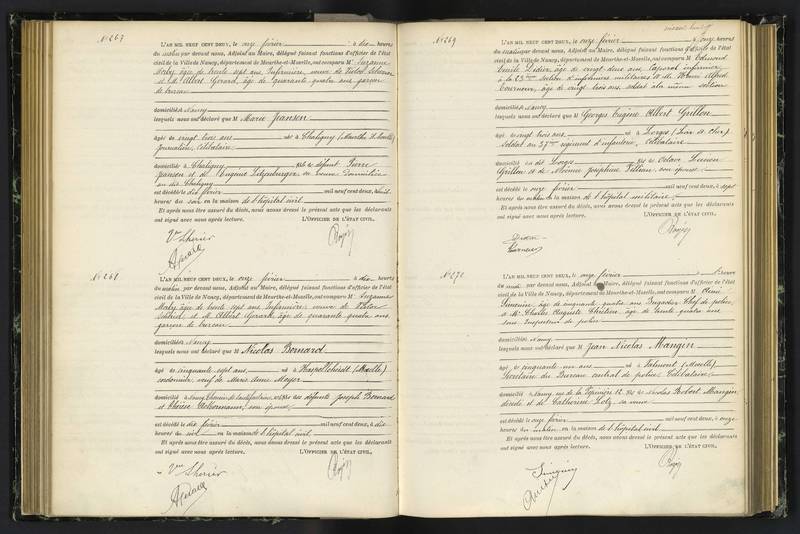 No 267
L'AN MIL NEUF CENT DEUX, le onze février à dix heures
du matin par devant Nous, Adjoint au Maire, délégué faisant fonctions d'officier de l'état
civil de la Ville de Nancy, département de Meurthe-et-Moselle, ont comparu M Suzanne
âgée de trente sept ans, Infirmière, veuve de Victor
et M Albert Gérard, âgé de quarante quatre ans garçon
de bureau
domiciliés à Nancy
lesquels nous ont déclaré que M Marie Jeansen
âgée de vingt trois ans née à Chaligny (Meurthe et Moselle)
journalière, Célibataire
domiciliée à Chaligny fille de défunt Pierre
Jeansen et de Eugénie sa veuve domiciliée
au dit Chaligny
est décédée le dix février mil neuf cent deux, à
heures du soir en la maison de l'hôpital civil
Et après nous être assuré du décès, nous avons dressé le présent acte que les déclarants
ont signé avec nous après lecture. L'OFFICIER DE L'ÉTAT CIVIL,
Vve Lherier
AGérard
No 268
L'AN MIL NEUF CENT DEUX, le onze février à dix heures
du matin, par devant Nous, Adjoint au Maire, délégué faisant fonctions d'officier de l'état
civil de la Ville de Nancy, département de Meurthe-et-Moselle, ont comparu M Suzanne
âgée de trente sept ans Infirmière, veuve de Victor
et M Albert Gérard, âgé de quarante quatre ans
garçon de bureau
domiciliés à Nancy
lesquels nous ont déclaré que M Nicolas Bonnard
âgé de cinquante sept ans né à (Moselle)
cordonnier, veuf de Marie Anne Mayer
domicilié à Nancy, Chemin de fils des défunts Joseph Bonnard
et Thérèse son épouse
est décédé le dix février mil neuf cent deux, à dix
heures du soir en la maison de l'hôpital civil
Et après nous être assuré du décès, nous avons dressé le présent acte que les déclarants
ont signé avec nous après lecture. L'OFFICIER DE L'ÉTAT CIVIL,
Vve Lherier
AGérard
No 269
L'AN MIL NEUF CENT DEUX, le onze février à onze heures
du matin par devant Nous, Adjoint au Maire, délégué faisant fonctions d'officier de l'état
civil de la Ville de Nancy, département de Meurthe-et-Moselle, ont comparu M Edmond
Emile Didier, âgé de vingt deux ans, Caporal infirmier
à la 23me section d'infirmiers militaires et M Alfred
Tourneur, âgé de vingt trois ans, soldat à la même section
domiciliés à Nancy
lesquels nous ont déclaré que M Georges Eugène Albert Grillon
âgé de vingt trois ans né à Lorges (Loir et Cher)
soldat au 37me régiment d'infanterie, Célibataire
domicilié au dit Lorges fils de Octave
Grillon et de Joséphine son épouse
est décédé le onze février mil neuf cent deux, à sept
heures du matin en la maison de l'hôpital militaire
Et après nous être assuré du décès, nous avons dressé le présent acte que les déclarants
ont signé avec nous après lecture. L'OFFICIER DE L'ÉTAT CIVIL,
Didier
Tourneur
No 270
L'AN MIL NEUF CENT DEUX, le onze février heure
du par devant Nous, Adjoint au Maire, délégué faisant fonctions d'officier de l'état
civil de la Ville de Nancy, département de Meurthe-et-Moselle, ont comparu M
âgé de cinquante quatre ans Brigadier Chef de police,
et M Charles Auguste Chrétien, âgé de trente quatre ans
sous Inspecteur de police
domiciliés à Nancy
lesquels nous ont déclaré que M Jean Nicolas Mangin
âgé de cinquante un ans né à Valmont (Moselle)
Secrétaire du Bureau central de police, Célibataire
domicilié à Nancy, rue de la Pépinière 12 fils de Nicolas Robert Mangin
décédé et de Catherine sa veuve
est décédé le onze février mil neuf cent deux, à onze
heures du matin en la maison de l'hôpital civil
Et après nous être assuré du décès, nous avons dressé le présent acte que les déclarants
ont signé avec nous après lecture. L'OFFICIER DE L'ÉTAT CIVIL,